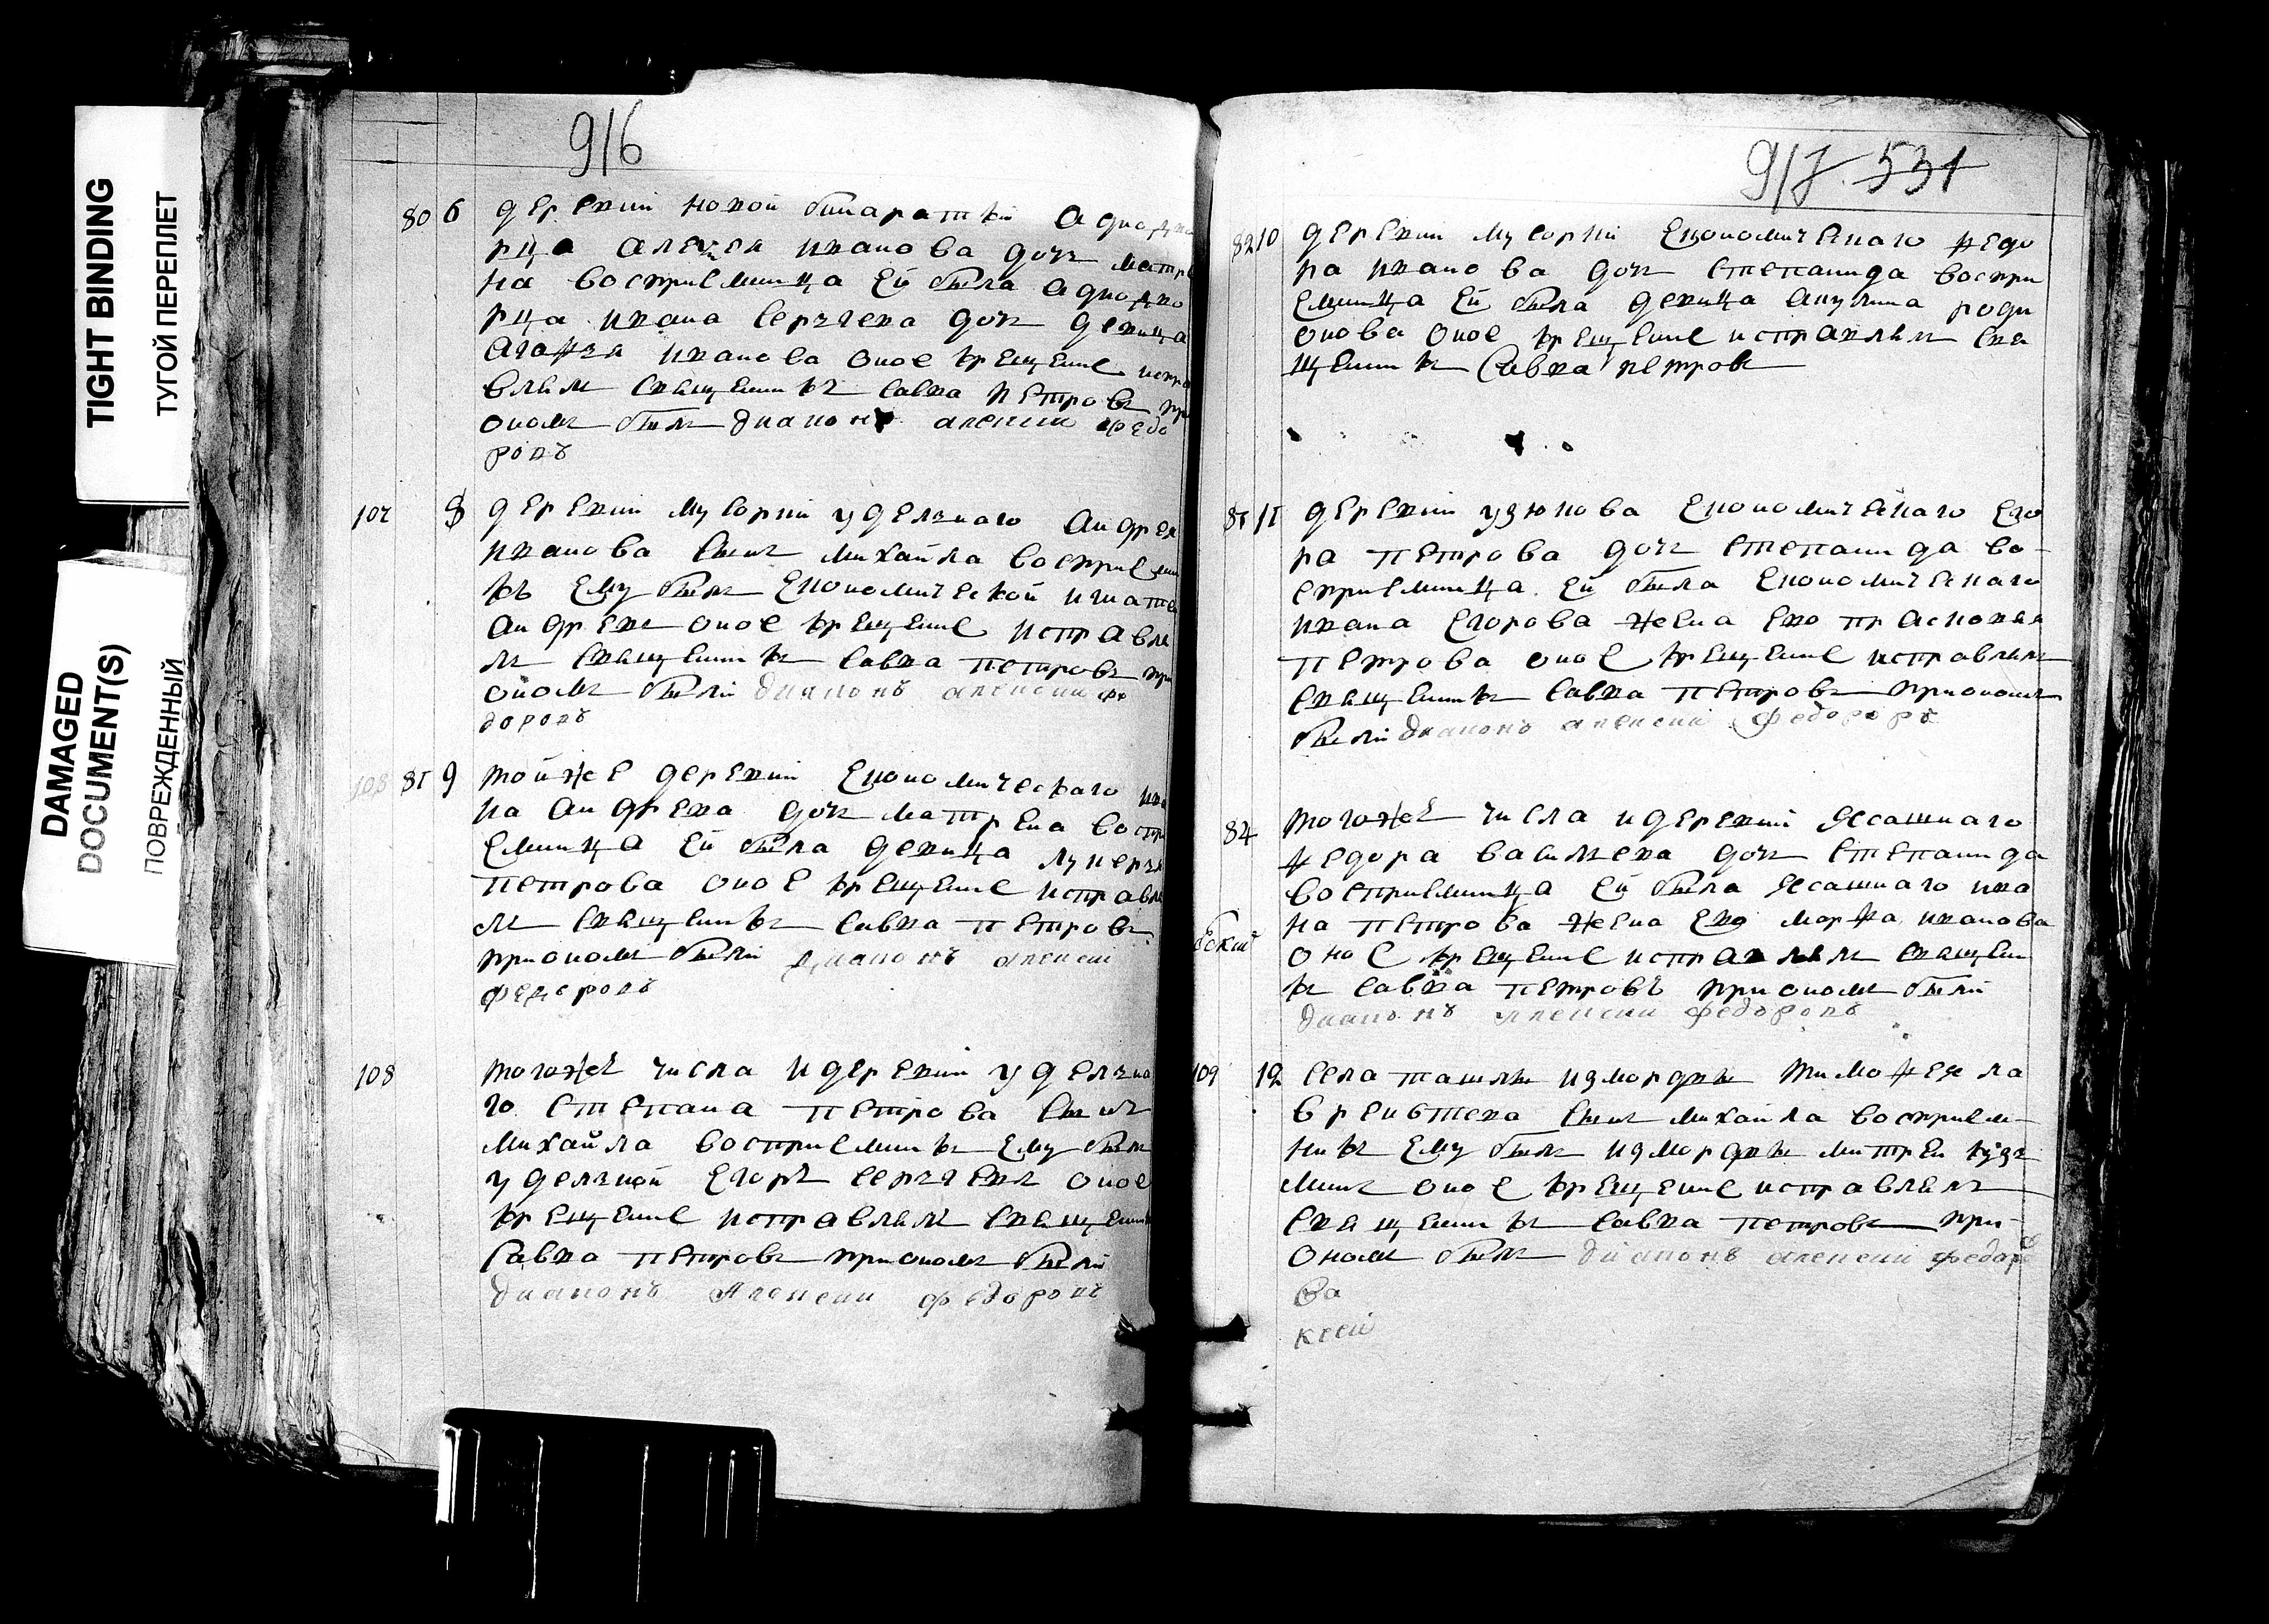 TIGHT BINDING
ТУГОЙ ПЕРЕПЛЕТ
DAMAGED
DOCUMENT(S)
ПОВРЕЖДЕННЫЙ
916
80 6 деревни новой бинаратки аднодво
рца алексея иванова дочь матре
на восприемница ей была аднодво
рца ивана сергеева дочь девица
агафья иванова оное крещение испра
влял священникъ савва петровъ при
ономъ былъ диаконъ алексеи федо
ровъ
107 8 деревни мусорки удельнаго андрея
иванова сынъ михайла восприемни
къ ему былъ економической игнатеи
андреевъ оное крещение исправля
лъ священникъ савва петровъ при
ономъ были диаконъ алексеи фе
доровъ
108 81 9 тойже деревни економическаго ива
на андреева дочь матрена воспри
емница ей была девица лукерья
петрова оное крещение исправля
лъ священникъ савва петровъ
приономъ были диаконъ алексеи
федоровъ
108 тогожъ числа и деревни удельна
го степана петрова сынъ
михайла восприемникъ ему былъ
удельной егоръ сергеевъ оное
крещение исправлялъ священникъ
савва петровъ приономъ были
диаконъ Алексеи федоровъ
917. 531
82 10 деревни мусорки економическаго федо
ра иванова дочь степанида воспри
емница ей была девица акулина роди
онова оное крещение исправлялъ свя
щенникъ савва петровъ
81 11 деревни узюкова економическаго его
ра петрова дочь степанида во-
сприемница ей была економическаго
ивана егорова жена ево прасковья
петрова оное крещение исправлялъ
священникъ савва петровъ приономъ
были диаконъ алексеи федоровъ
84 тогожъ числа и деревни ясашнаго
федора васильева дочь степанида
восприемница ей была ясашнаго ива
на петрова жена ево марфа иванова
оное крещение исправлялъ священни
къ савва петровъ приономъ были
диаконъ алексеи федоровъ
109 12 села ташлы измордвы тимофея ла
сынъ михайла восприем-
никъ ему былъ измордвы митреи кузь
минъ оное крещение исправлялъ
священникъ савва петровъ при-
ономъ былъ диаконъ алексеи федор
ва
ксеи